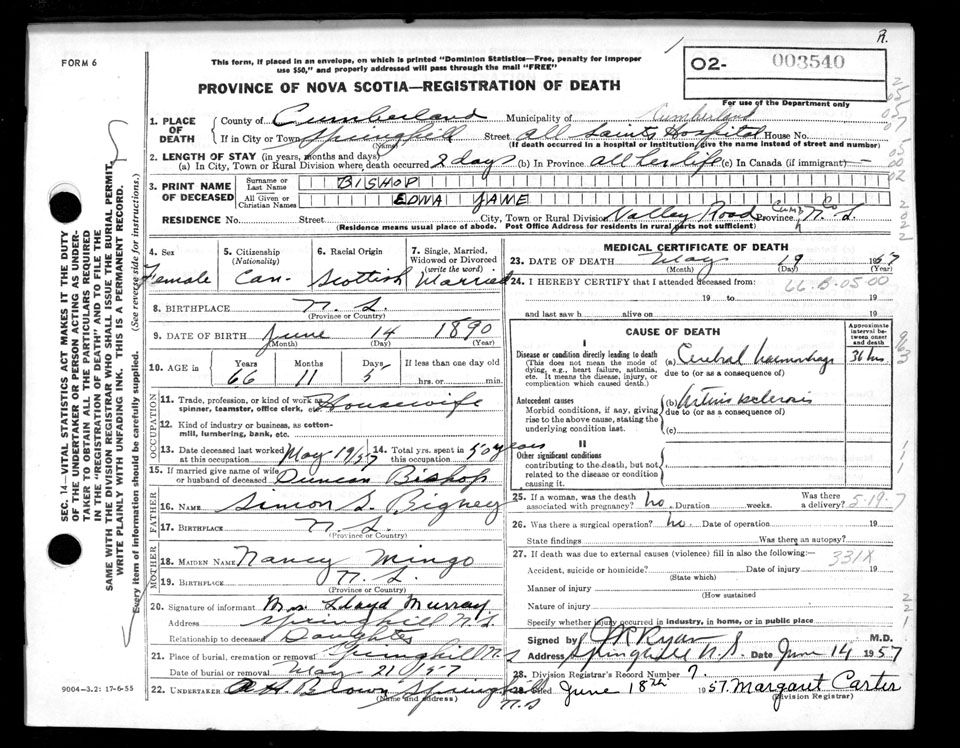 R.
FORM 6
This form, if placed in an envelope, on which is printed "Dominion Statistics—Free, penalty for improper
use $50," and properly addressed will pass through the mail "FREE"
02- 003540
For use of the Department only
PROVINCE OF NOVA SCOTIA—REGISTRATION OF DEATH
1. PLACE OF DEATH County of Cumberland Municipality of Cumberland
If in City or Town Springhill (Name) Street All Saints Hospital House No.
(If death occurred in a hospital or institution, give the name instead of street and number)
2. LENGTH OF STAY (in years, months and days)
(a) In City, Town or Rural Division where death occurred 2 days (b) In Province all her life (c) In Canada (if immigrant) —
3. PRINT NAME OF DECEASED Surname or Last Name BISHOP
All Given or Christian Names EDNA JANE
RESIDENCE No. Street City, Town or Rural Division Valley Road Cumb Co Province N. S.
(Residence means usual place of abode. Post Office Address for residents in rural parts not sufficient)
4. Sex Female
5. Citizenship (Nationality) Can-
6. Racial Origin Scottish
7. Single, Married, Widowed or Divorced (write the word) Married
8. BIRTHPLACE N. S.
(Province or Country)
9. DATE OF BIRTH June 14 1890
(Month) (Day) (Year)
10. AGE in Years 66 Months 11 Days 5 If less than one day old
hrs. or min.
OCCUPATION
11. Trade, profession, or kind of work as spinner, teamster, office clerk, etc. Housewife
12. Kind of industry or business, as cotton-mill, lumbering, bank, etc.
13. Date deceased last worked at this occupation May 1957 14. Total yrs. spent in this occupation 50 years
15. If married give name of wife or husband of deceased Duncan Bishop
FATHER
16. NAME Simon S. Bigney
17. BIRTHPLACE N. S.
(Province or Country)
MOTHER
18. MAIDEN NAME Nancy Mingo
19. BIRTHPLACE N. S.
(Province or Country)
20. Signature of informant Mrs Lloyd Murray
Address Springhill N.S.
Relationship to deceased Daughter
21. Place of burial, cremation or removal Springhill N.S
Date of burial or removal May 21/957
22. UNDERTAKER A H. Brown Springhill N.S
(Name and address)
9004—3.2: 17-6-55
MEDICAL CERTIFICATE OF DEATH
23. DATE OF DEATH May 19 1957
(Month) (Day) (Year)
24. I HEREBY CERTIFY that I attended deceased from:
66-B-05-00
19 to 19
and last saw h alive on 19
CAUSE OF DEATH
Approximate interval between onset and death
I
Disease or condition directly leading to death (a) Cerebral haemorrhage 36 hrs
(This does not mean the mode of dying, e.g., heart failure, asthenia, etc. It means the disease, injury, or complication which caused death.)
due to (or as a consequence of)
Antecedent causes (b) Arteriosclerosis
Morbid conditions, if any, giving rise to the above cause, stating the underlying condition last.
due to (or as a consequence of)
(c)
II
Other significant conditions
contributing to the death, but not related to the disease or condition causing it.
25. If a woman, was the death associated with pregnancy? no. Duration weeks. Was there a delivery? 5-19-7
26. Was there a surgical operation? no. Date of operation 19
State findings Was there an autopsy?
27. If death was due to external causes (violence) fill in also the following:—
331X
Accident, suicide or homicide? Date of injury 19
(State which)
Manner of injury
(How sustained
Nature of injury
Specify whether injury occurred in industry, in home, or in public place
Signed by J R Ryan M.D.
Address Springhill N.S. Date June 14 1957
28. Division Registrar's Record Number 7.
29. Filed June 18th 1957. Margaret Carter
(Division Registrar)
SEC. 14—VITAL STATISTICS ACT MAKES IT THE DUTY
OF THE UNDERTAKER OR PERSON ACTING AS UNDER-
TAKER TO OBTAIN ALL THE PARTICULARS REQUIRED
IN THE "REGISTRATION OF DEATH" AND TO FILE THE
SAME WITH THE DIVISION REGISTRAR WHO SHALL ISSUE THE BURIAL PERMIT.
WRITE PLAINLY WITH UNFADING INK. THIS IS A PERMANENT RECORD.
Every item of information should be carefully supplied. (See reverse side for instructions.)